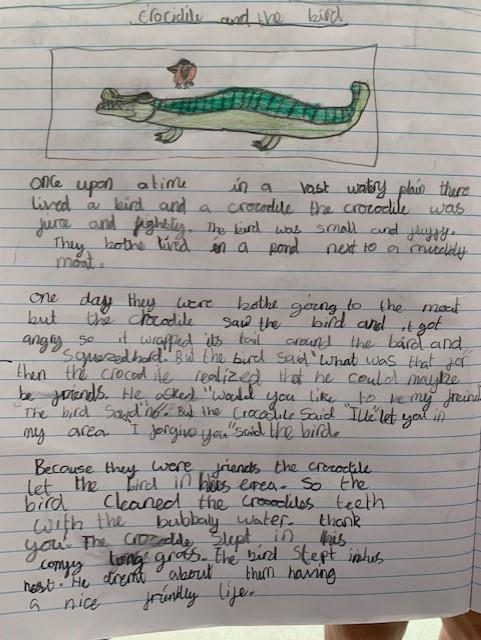 crocidile and the bird
Once upon a time in a vast watery plain there
lived a bird and a crocodile the crocodile was
and fightily. The bird was small and fluffy.
They bothe lived in a pond next to a muddy
moat.
One day they were bothe going to the moat
but the crocodile saw the bird and it got
angry so it wrapped its tail around the bird and
squezed hard. But the bird said "What was that for"
then the crocodile realized that he could maybe
be friends. He asked "would you like to be my freind
"The bird said "no". But the Crocodile said "I'le let you in
my area "I forgive you" said the bird.
Because they were friends the crocodile
let the bird in his erea. So the
bird cleaned the crocodiles teeth
with the bubbaly water. thank
you. The crocodile slept in his
comfy long grass. The bird slept in his
nest. He dremt about them having
a nice friendly life.